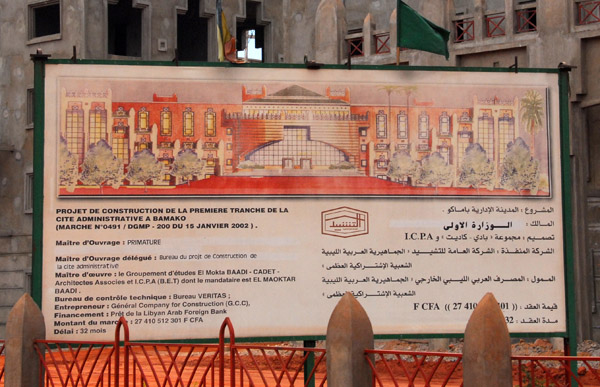 PROJET DE CONSTRUCTION DE LA PREMIERE TRANCHE DE LA
CITE ADMINISTRATIVE A BAMAKO
(MARCHE N°0491 / DGMP - 200 DU 15 JANVIER 2002 ) .
Maître d'Ouvrage : PRIMATURE
Maître d'Ouvrage délégué : Bureau du projet de Construction de
la cite administrative
Maître d'œuvre : le Groupement d'études El Mokta BAADI - CADET -
Architectes Associes et I.C.P.A (B.E.T) dont le mandataire est EL MAOKTAR
BAADI .
Bureau de contrôle technique : Bureau VERITAS ;
Entrepreneur : Général Company for Construction (G.C.C),
Financement : Prêt de la Libyan Arab Foreign Bank
Montant du marché : 27 410 512 301 F CFA
Délai : 32 mois
التشييد
المشروع : المدينة الإدارية باماكو .
المالك : الوزارة الاولى
تصميم : مجموعة « بادي - كاديت » و I.C.P.A
الشركة المنفذة : الشركة العامة للتشييد ، الجماهيرية العربية الليبية
الشعبية الإشتراكية العظمى ؛
الممول : المصرف العربي الليبي الخارجي ، الجماهيرية العربية الليبية
الشعبية الإشتراكية العظمى .
قيمة العقد : F CFA (( 27 410 301 ))
مدة العقد : 32